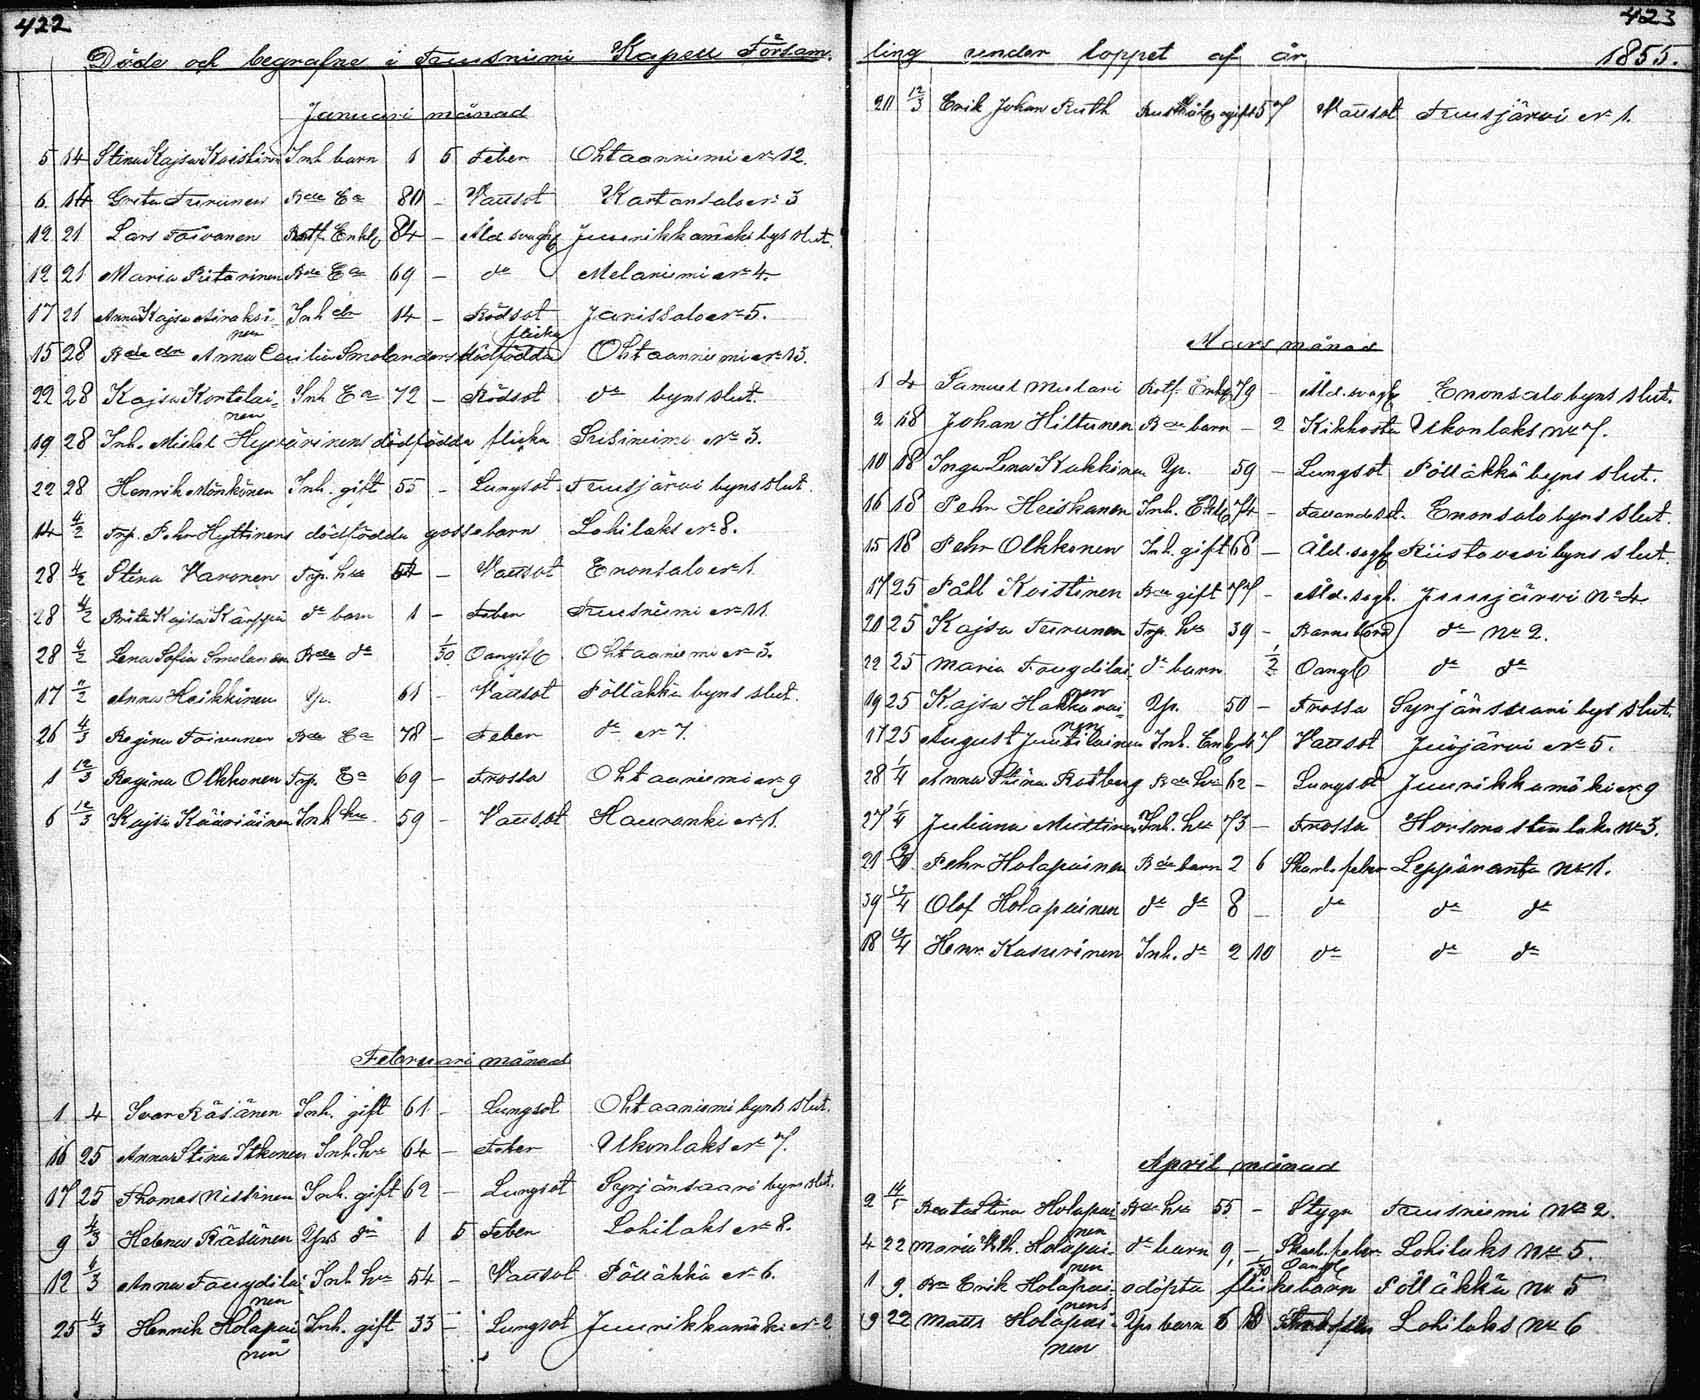 422
Döde och begrafne i Tuusniemi Kapell Församl.
Januari månad
5 14 Stina Kajsa Koistinen Inh. barn 1 5 Feber Ohtaanniemi No 12.
6. 14 Greta Turunen Bde Ea 80 - Vattsot Kartansalo No 3
12 21 Lars Toivanen Rotf. Enkl. 84 - Åld.svagh. Juurikkamäki bys slut.
12 21 Maria Pitarinen Bde Ea 69 - do Melaniemi No 4.
17 21 Anna Kajsa Asiraksi- Inh. dr 14 - Rödsot Janissalo No 5.
nen
15 28 Bde dr Anna Cecilia Smolanders dödfödda flicka Ohtaanniemi No 13.
22 28 Kajsa Kortelai- Inh. Ea 72 - Rödsot do byns slut.
nen
19 28 Inh. Mickel Hyvärinens dödfödda flicka Susiniemi No 3.
22 28 Henrik Mönkönen Inh. gift 55 - Lungsot Tuusjärvi byns slut.
14 4/2 Trp. Pehr Hyttinens dödfödda gossebarn Lohilaks No 8.
28 4/2 Stina Varonen Trp. hu 54 - Vattsot Enonsalo No 1.
28 4/2 Brita Kajsa Kärppä do barn 1 - Feber Tuusniemi No 11.
28 4/2 Lena Sofia Smolander Bde do 1/30 Oangifl. Ohtaanniemi No 3.
17 11/2 Anna Heikkinen Yp. 61 - Vattsot Pölläkkä byns slut.
26 4/3 Regina Toivanen Bde Ea 78 - Feber do No 7.
1 12/3 Regina Olkkonen Trp. Ea 69 - Trossa Ohtaanniemi No 9
6 12/3 Kajsa Kääriäinen Inh. hu 59 - Vattsot Hauranki No 1.
Februari månad
1 4 Ivar Räsänen Inh. gift 61 - Lungsot Ohtaanniemi byns slut.
16 25 Anna Stina Itkonen Inh. hu 64 - Feber Ukonlaks No 7.
17 25 Thomas Nissinen Inh. gift 62 - Lungsot Syrjänsaari byns slut.
9 4/3 Helena Räsänen Yps dr 1 5 Feber Lohilaks No 8.
12 4/3 Anna Taugdilai- Inh. hu 54 - Vattsot Pölläkkä No 6.
nen
25 4/3 Henrik Holapai- Inh. gift 33 - Lungsot Juurikkamäki No 2
nen
423
ling under loppet af år 1855.
20 12/3 Erik Johan Ruth ogift 57 Vattsot Tuusjärvi No 1.
Mars månad
1 4 Samuel Mustari Rotf. Enkl. 79 - Åld.svagh. Enonsalo byns slut.
2 18 Johan Hiltunen Bde barn - 2 Kikhosta Ukonlaks No 7.
10 18 Inga Lena Kukkinen Yp. 59 - Lungsot Pölläkkä byns slut.
16 18 Pehr Heiskanen Inh. Enkl. 74 - Enonsalo byns slut.
15 18 Pehr Olkkonen Inh. gift 68 - Åld.svagh. Riistavesi byns slut.
17 25 Påll Koistinen Bde gift 77 - Åld.svgh. Juujärvi No 4
20 25 Kajsa Turunen Trp. hu 39 - Barnsbörd do No 2.
22 25 Maria Taugdilai- do barn 1/2 Oangfl do do
nen
19 25 Kajsa Hakkarai- Yp. 50 - Trossa Syrjänsaari bys slut.
nen
17 25 August Juutilainen Inh. Enkl. 67 Vattsot Juojärvi No 5.
28 1/4 Anna Stina Rotberg Bde hu 62 - Lungsot Juurikkamäki No 9
27 1/4 Juliana Miettinen Inh. hu 73 - Trossa Horsmastenlaks No 3.
21 Pehr Holapainen Bde barn 2 6 Skarl.feber Leppäranta No 1.
29 9/4 Olof Holapainen do do 8 - do do do
18 9/4 Henr. Kasurinen Inh. do 2 10 do do do
April månad
2 14/5 Beata Stina Holapai- Bde hu 55 - Stygn Tuusniemi No 2.
nen
4 22 Maria Holapai- do barn 9 - Skarl.feber Lohilaks No 5.
nen
1 9. Bde Erik Holapai- odöpta flickebarn 1/30 Oangfl Pölläkkä No 5
nens
9 22 Matts Holapai- Yps barn 6 Lohilaks No 6
nen